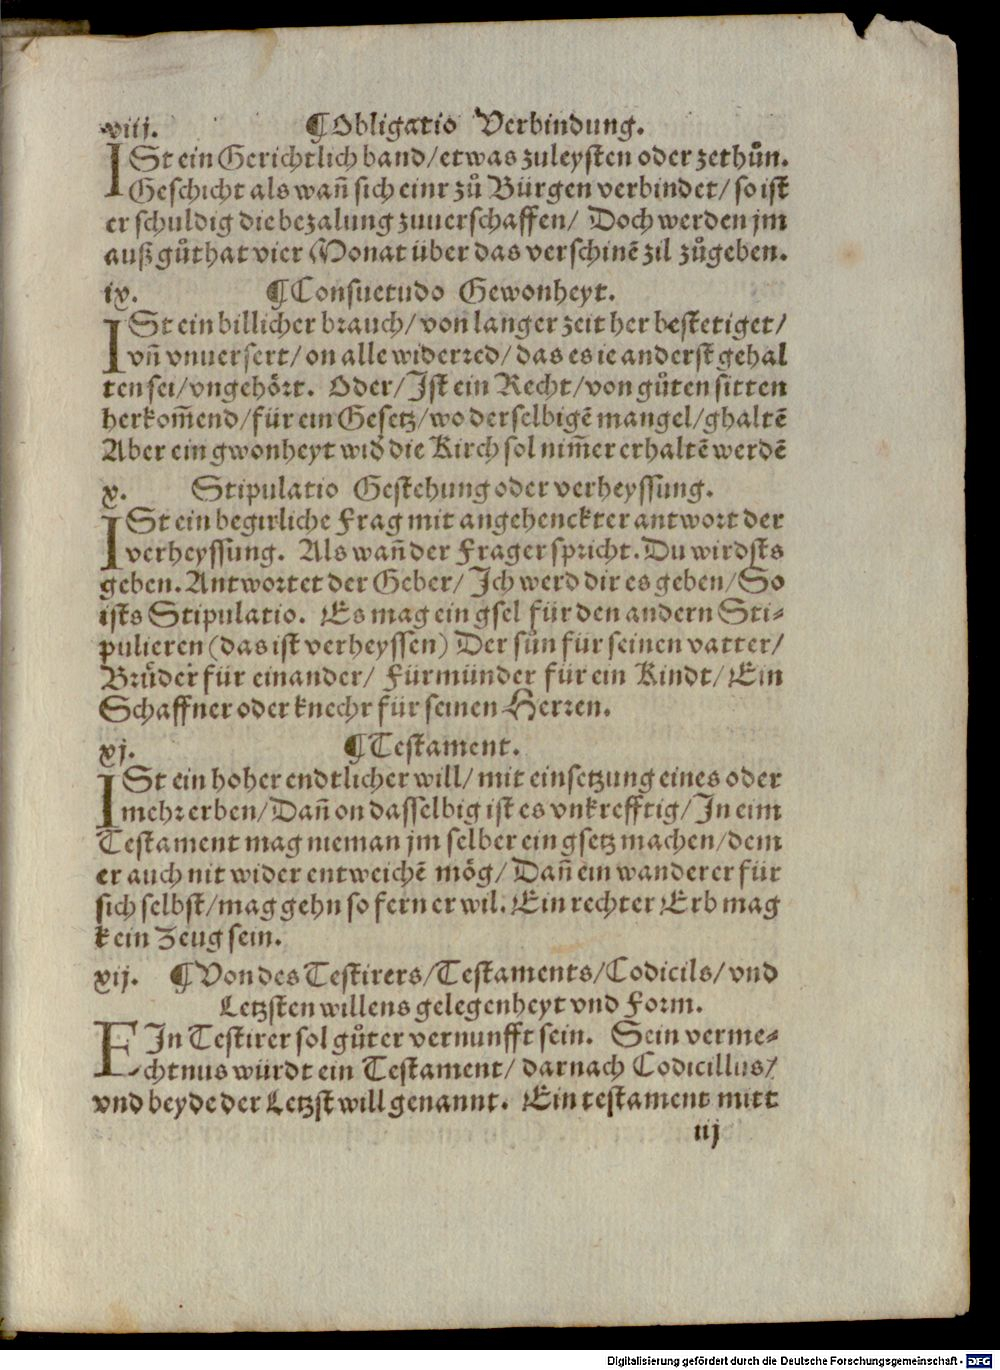 viij. ¶Obligatio Verbindung.
ISt ein Gerichtlich band/etwas zuleysten oder zethůn.
Geschicht als wañ sich einr zů Bürgen verbindet/so ist
er schuldig die bezalung zuuerschaffen/ Doch werden jm
auß gůthat vier Monat über das verschinẽ zil zůgeben.
ix. ¶Consuetudo Gewonheyt.
ISt ein billicher brauch/von langer zeit her bestetiget/
vñ vnuersert/on alle widerred/das es ie anderst gehal
ten sei/vngehört. Oder/Ist ein Recht/von gůten sitten
herkom̃end/für ein Gesetz/wo der selbigẽ mangel/ghaltẽ
Aber ein gwonheyt wid die Kirch sol nim̃er erhaltẽ werdẽ
x. Stipulatio Gestehung oder verheyssung.
ISt ein begirliche Frag mit angehenckter antwort der
verheyssung. Als wañ der Frager spricht. Du wirdsts
geben. Antwortet der Geber/ Ich werd dir es geben/So
ists Stipulatio. Es mag ein gsel für den andern Sti-
pulieren (das ist verheyssen) Der sůn für seinen vatter/
Brůder für einander/ Fürmünder für ein Kindt/Ein
Schaffner oder knechr für seinen Herren.
xj. ¶Testament.
ISt ein hoher endtlicher will/mit einsetzung eines oder
mehr erben/Dañ on dasselbig ist es vnkrefftig/In eim
Testament mag nieman jm selber ein gsetz machen/dem
er auch nit wider entweichẽ mög/ Dañ ein wanderer für
sich selbst/mag gehn so fern er wil. Ein rechter Erb mag
kein Zeug sein.
xij. ¶Von des Testirers/Testaments/Codicils/vnd
Letzsten willens gelegenheyt vnd Form.
EIn Testirer sol gůter vernunfft sein. Sein verme-
chtnus würdt ein Testament/darnach Codicillus/
vnd beyde der Letzst will genannt. Ein testament mitt
iij
Digitalisierung gefördert durch die Deutsche Forschungsgemeinschaft - DFG